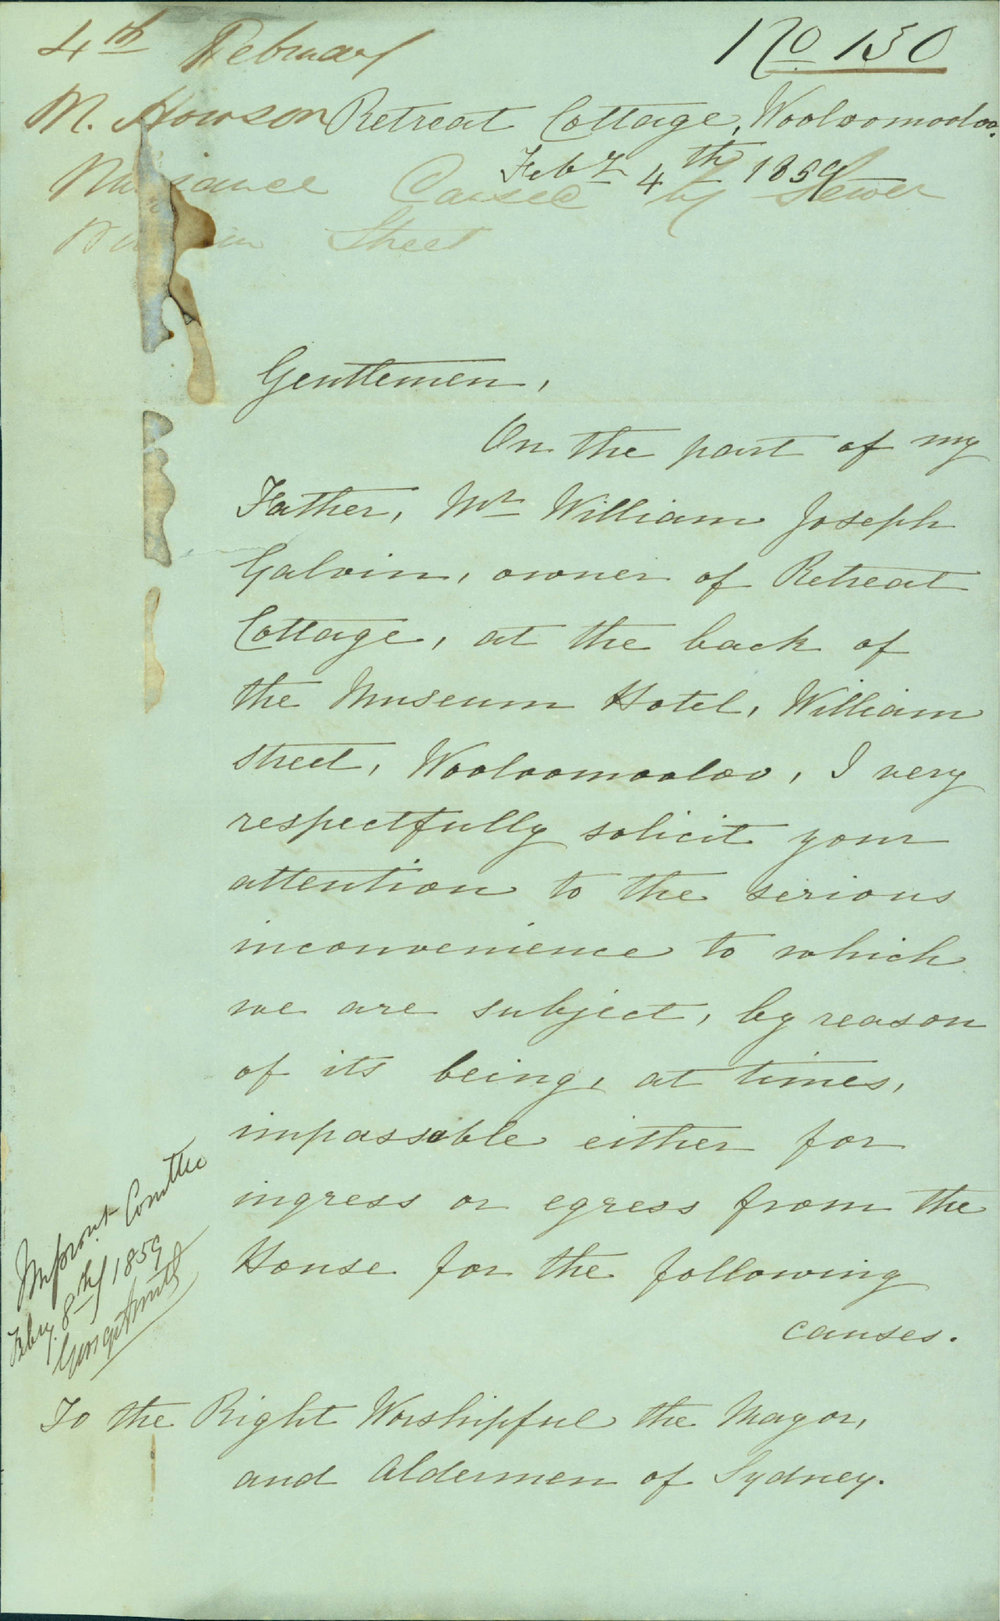 4th February
No 130
M. Howson
Retreat Cottage, Wooloomooloo.
Feby 4th 1859
Nuisance Caused by Sewer
William Street
Gentlemen,
On the part of my
Father, Mr William Joseph
Galvin, owner of Retreat
Cottage, at the back of
the Museum Hotel, William
street, Wooloomooloo, I very
respectfully solicit your
attention to the serious
inconvenience to which
we are subject, by reason
of its being, at times,
impassable either for
ingress or egress from the
House for the following
causes.
Improvt Comttee
Feby 8th/1859
George Smith
To the Right Worshipful the Mayor,
and Aldermen of Sydney.